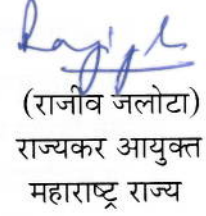 (राजीव जलोटा)
राज्यकर आयुक्त
महाराष्ट्र राज्य